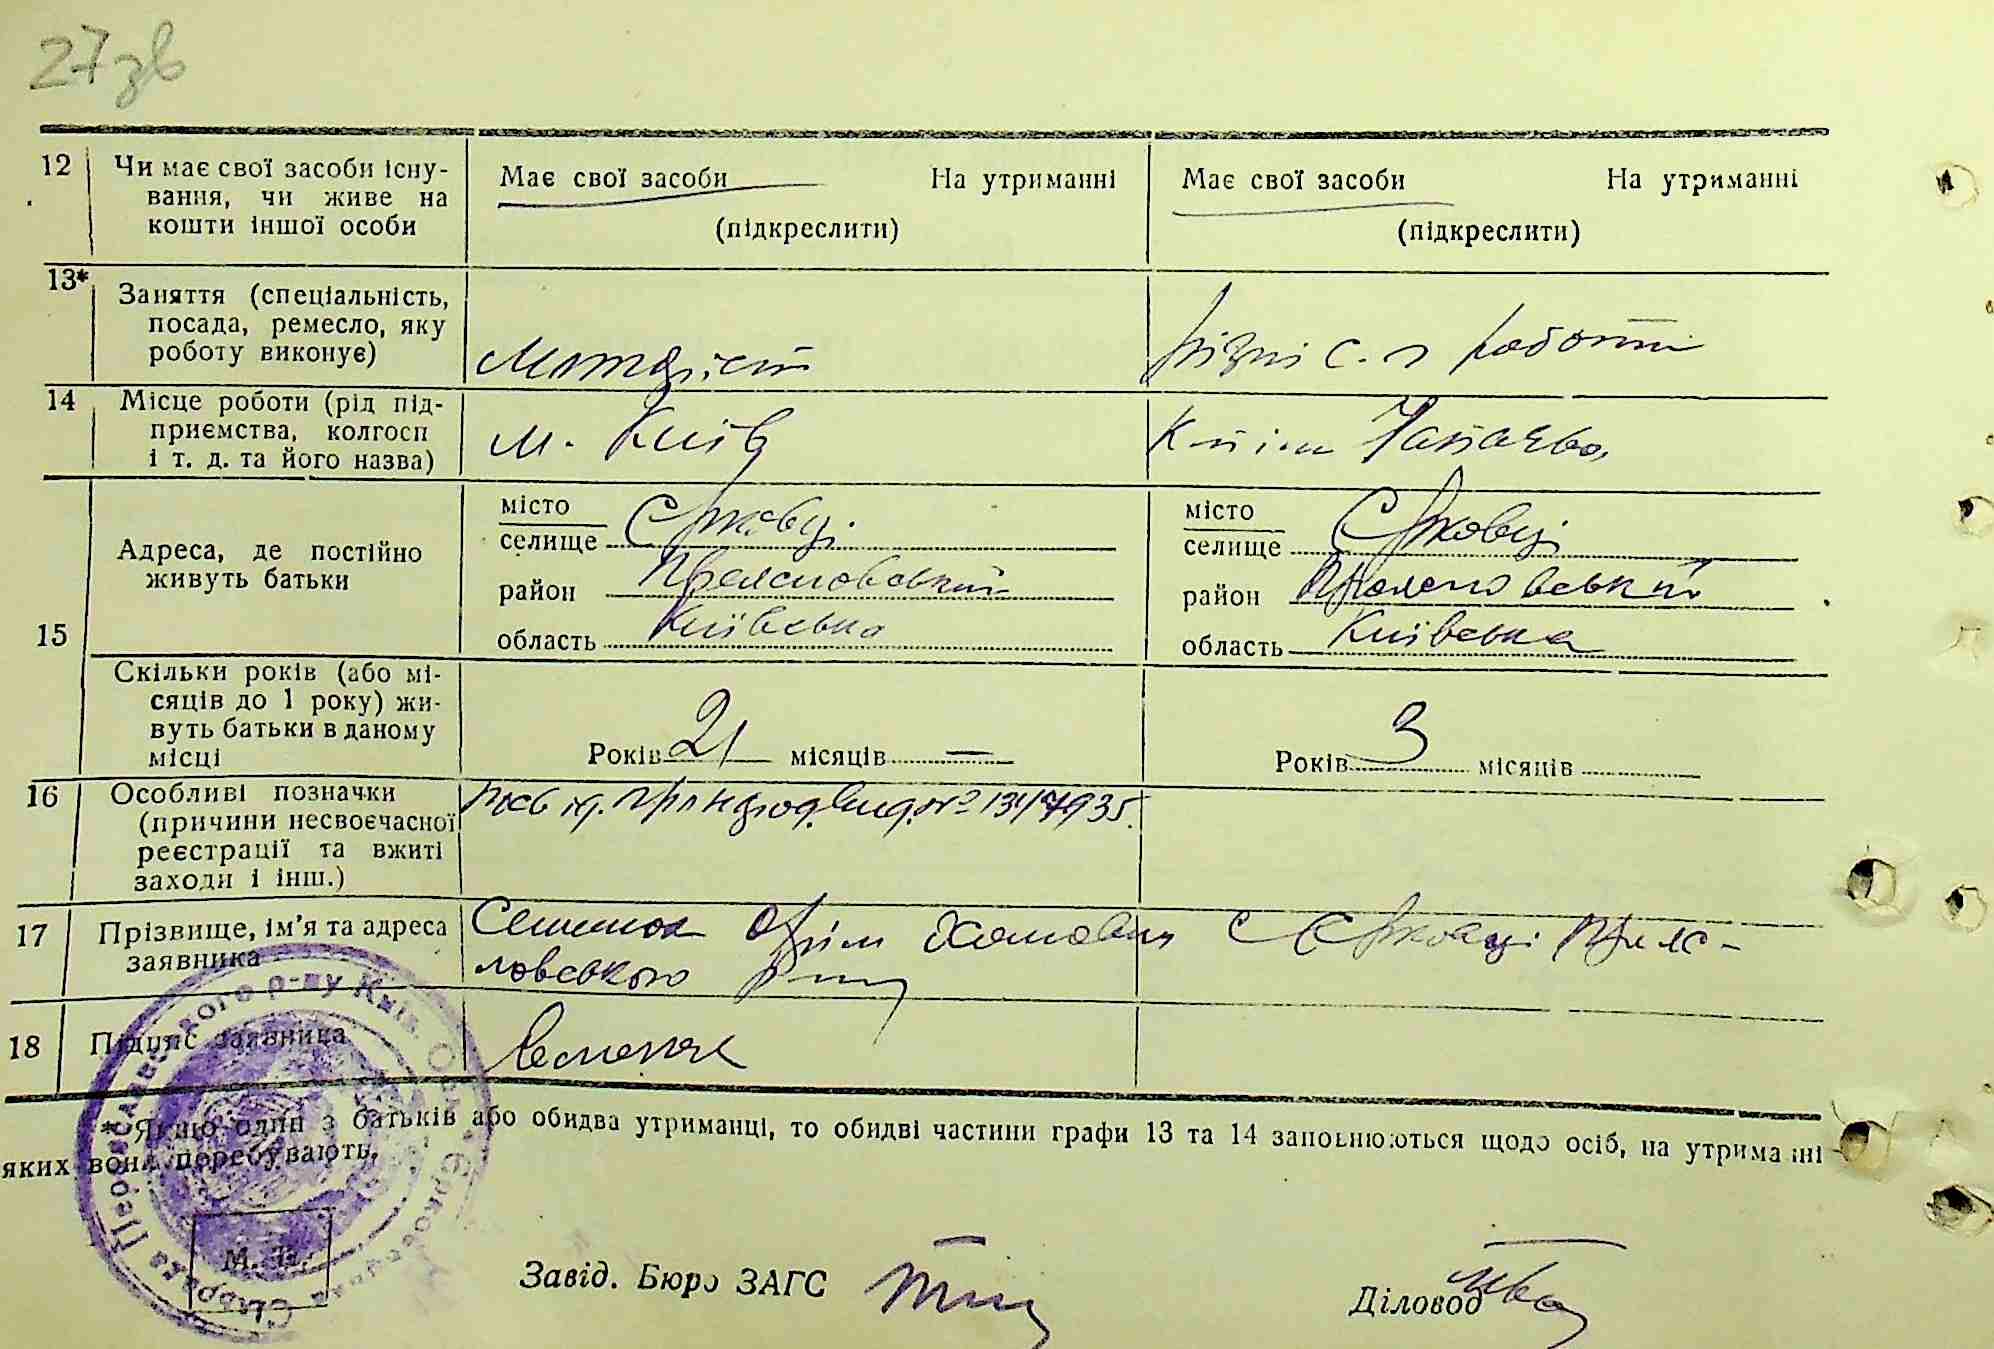 27зв
12 Чи має свої засоби існу-
вання, чи живе на
кошти іншої особи
Має свої засоби На утриманні
(підкреслити)
Має свої засоби На утриманні
(підкреслити)
13* Заняття (спеціальність,
посада, ремесло, яку
роботу виконує)
різні с. г роботи
14 Місце роботи (рід під-
приємства, колгосп
і т. д. та його назва)
м. Київ
Чапаєва
15
Адреса, де постійно
живуть батьки
місто
селище Єрковці
район
область Київська
місто
селище Єрковці
район
область Київська
Скільки років (або мі-
сяців до 1 року) жи-
вуть батьки в даному
місці
Років 21 місяців —
Років 3 місяців
16 Особливі позначки
(причини несвоєчасної
реєстрації та вжиті
заходи і інш.)
17 Прізвище, ім'я та адреса
заявника
Хомович с Єрковці
18 Підпис заявника
* Якщо один з батьків або обидва утриманці, то обидві частини графи 13 та 14 заповнюються щодо осіб, на утриманні
яких вони перебувають.
М. П.
Завід. Бюро ЗАГС
Діловод